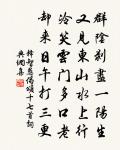 群陰剝盡一陽生
又見東山水上行
冷笑雲門多口老
却來日午打三更
釋慧遠偈頌十七首詞
典網集